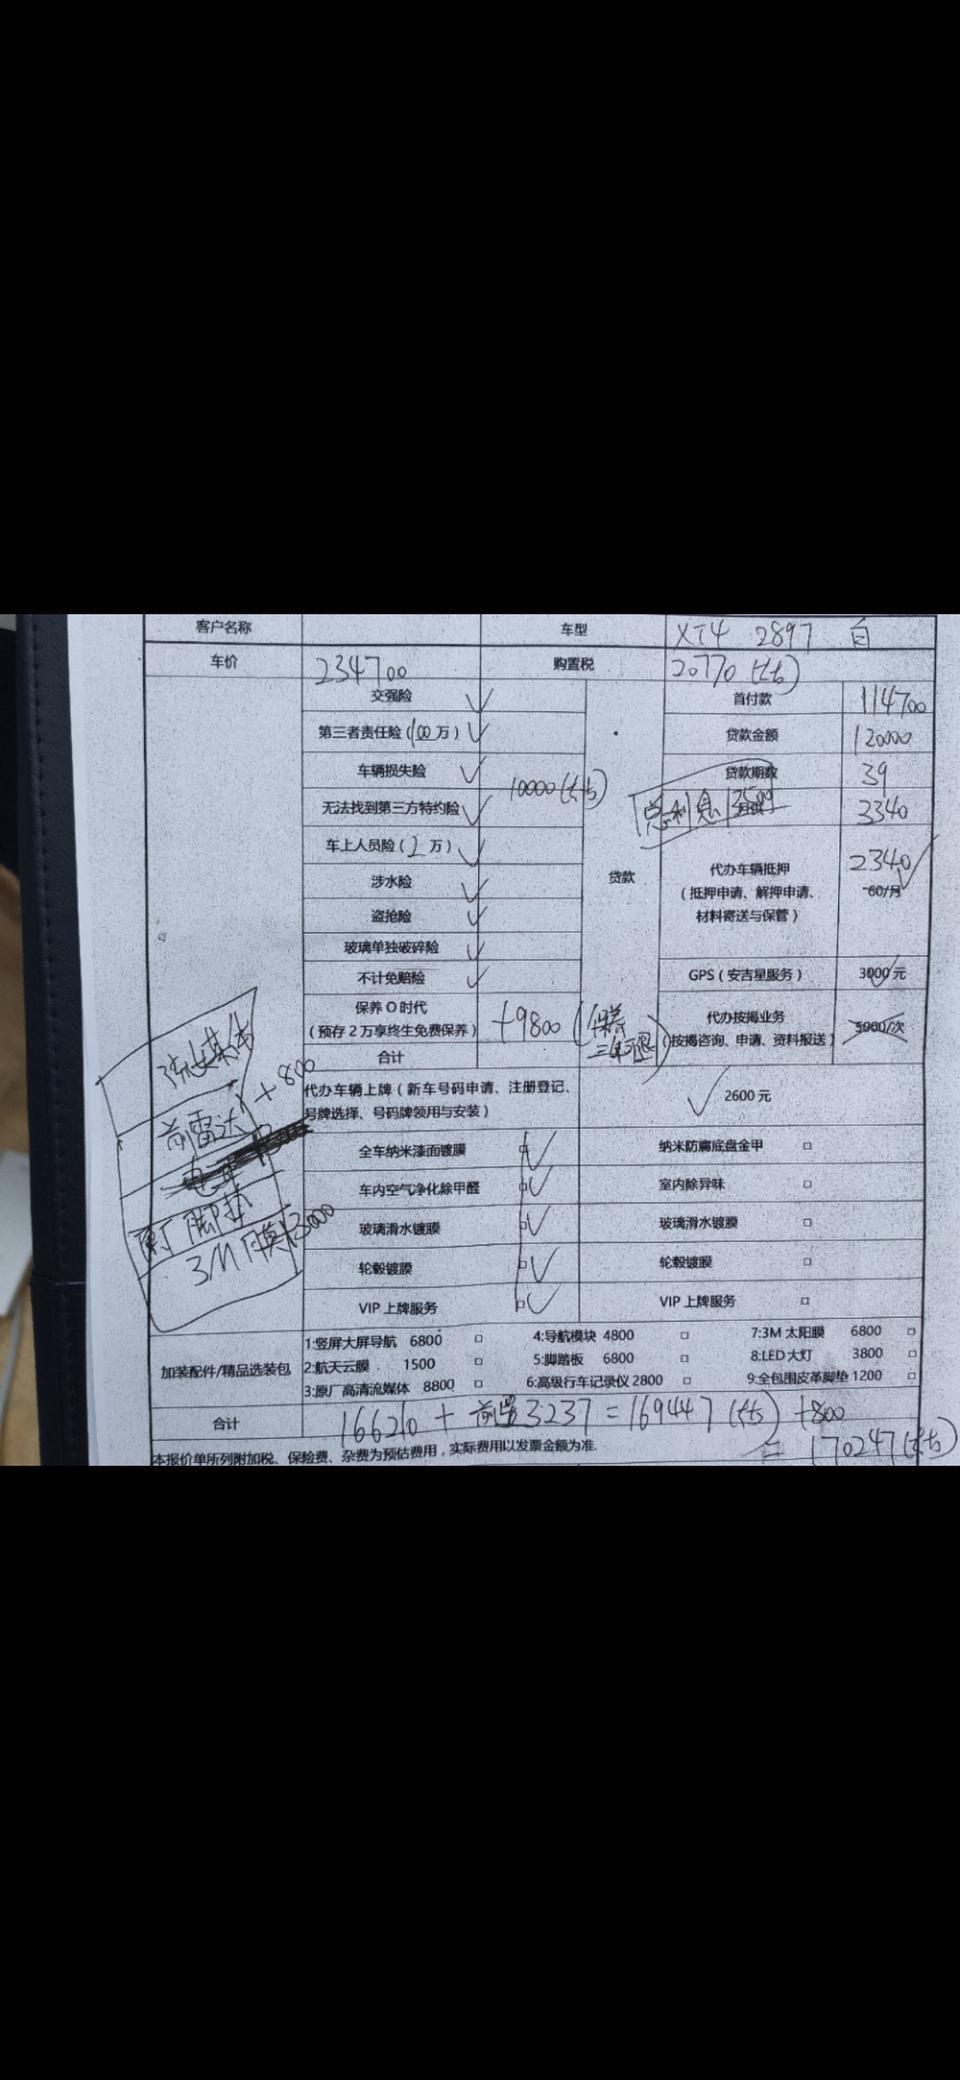 客户名称 车型 XT4 2897 自
车价 234700 购置税 20770(左右)
交强险 ✓ 首付款 114700
第三者责任险(100万) ✓ 贷款金额 120000
车辆损失险 ✓ 10000(左右) 贷款期数 39
无法找到第三方特约险 ✓ 总利息 3340
车上人员险(2万) ✓
涉水险 ✓ 贷款 代办车辆抵押 2340 ✓
(抵押申请、解押申请、 60/月
盗抢险 ✓ 材料寄送与保管)
玻璃单独破碎险 ✓
不计免赔险 ✓ GPS(安吉星服务) 3000元 ✓
保养O时代
(预存2万享终生免费保养) +9800(三年可退) 代办按揭业务 5000/次
合计 (按揭咨询、申请、资料报送)
代办车辆上牌(新车号码申请、注册登记、
号牌选择、号码牌领用与安装) ✓ 2600元
流媒体
前雷达 +800
脚垫
3M膜 3000
全车纳米漆面镀膜 □✓ 纳米防腐底盘金甲 □
车内空气净化除甲醛 □✓ 室内除异味 □
玻璃滑水镀膜 □✓ 玻璃滑水镀膜 □
轮毂镀膜 □✓ 轮毂镀膜 □
VIP上牌服务 □✓ VIP上牌服务 □
加装配件/精品选装包
1:竖屏大屏导航 6800 □ 4:导航模块 4800 □ 7:3M太阳膜 6800 □
2:航天云膜 1500 □ 5:脚踏板 6800 □ 8:LED大灯 3800 □
3:原厂高清流媒体 8800 □ 6:高级行车记录仪 2800 □ 9:全包围皮革脚垫 1200 □
合计 166210 + 前雷 3237 = 169447(左右) +800
= 170247(左右)
本报价单所列附加税、保险费、杂费为预估费用，实际费用以发票金额为准.